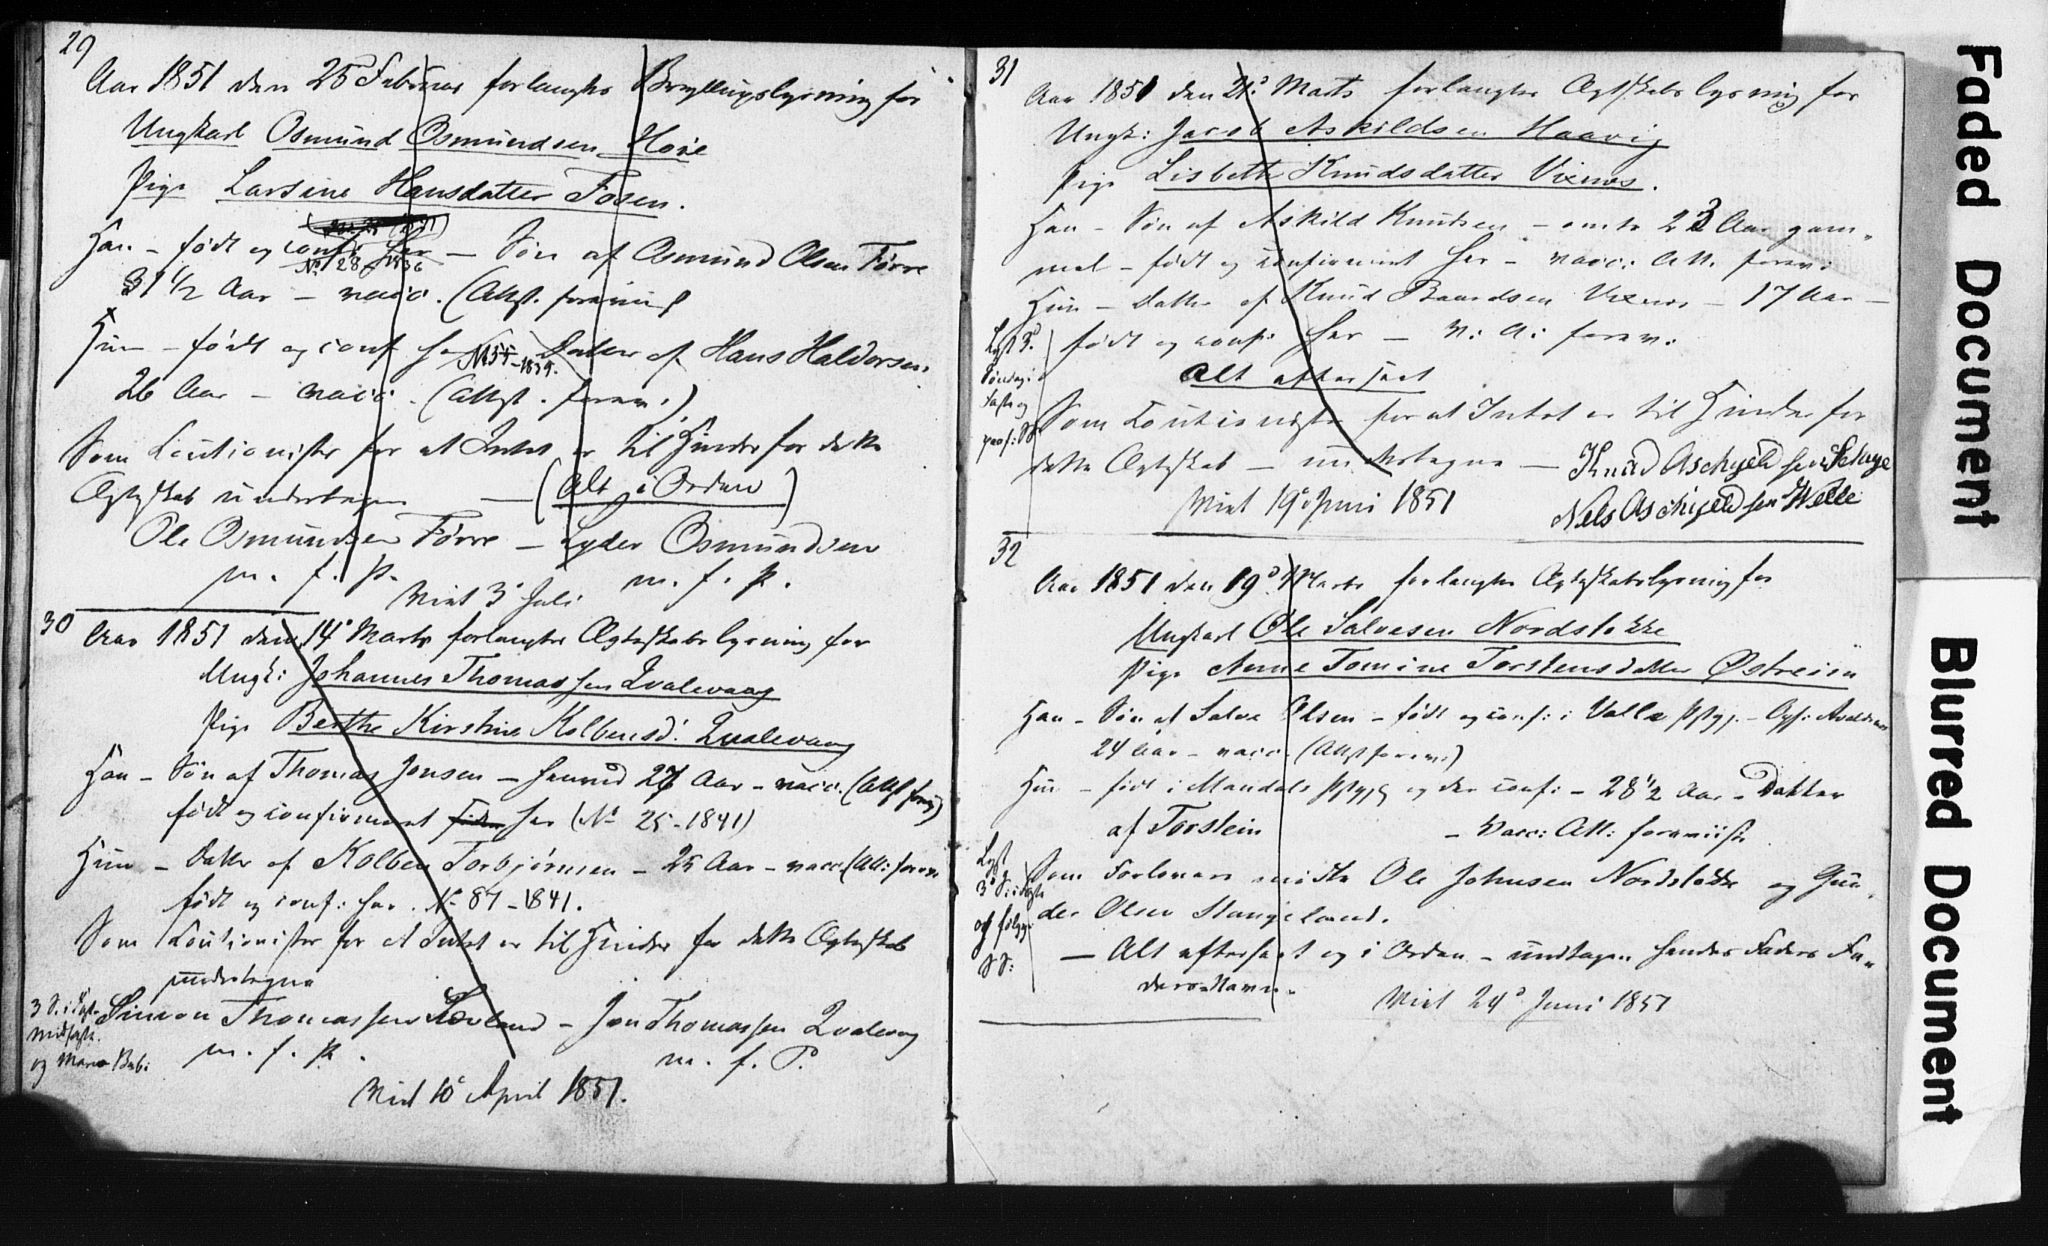 29
Aar 1851 den 25 Februar forlangtes Bryllupslysning for
Ungkarl Osmund Osmundsen Høie
Pige Larsine Hansdatter Fosen.
Han – født og conf: her – Søn af Osmund Olsen Førre
No 28 1836
31 1/2 Aar – vacc. (Attst. forevist
Hun – født og conf her Datter af Hans Haldorsen
No 55 – 1839.
26 Aar – vacc. (Attst. forev:)
Som Cautionister for at Intet er til Hinder for dette
Ægteskab undertegne – (Alt i Orden)
Ole Osmundsen Førre – Lyder Osmundsen
m. f. P. m. f. P.
Viet 3 Juli
30
Aar 1851 den 14 Marts forlangtes Ægteskabslysning for
Ungk: Johannes Thomassen Qvalevaag
Pige Berthe Kirstine Kolbensd: Qvalevaag
Han – Søn af Thomas Jonsen – 27 Aar – vacc. (Att forev)
født og confirmeret her (No 25 – 1841)
Hun – Datter af Kolben Torbjørnsen – 25 Aar – vacc (Att: forev
født og conf: her. No 87 – 1841.
Som Cautionister for at Intet er til Hinder for dette Ægteskab
undertegne
Simon Thomassen – Jon Thomassen Qvalevag
m. f. P. m. f. P.
3 S. i Faste
Midfaste
og Maria Beb:
Viet 10 April 1851.
31
Aar 1851 den 21 Marts forlangtes Ægteskabslysning for
Ungk: Jacob Askildsen Haavig
Pige Lisbeth Knudsdatter Vixnes.
Han – Søn af Askild Knudsen – 23 Aar gam-
mel – født og confirmeret her – vacc: Att. forev:
Hun – Datter af Knud Baardsen Vixnes – 17 Aar –
født og conf: her – V: A: forev:
Alt efterseet
Som Cautionister for at Intet er til Hinder for
dette Ægteskab – undertegne – Knud Aschjeldsen
Nels Aschjeldsen Welle
Lyst
Søndag i
Faste og
Viet 19 Juni 1851
32
Aar 1851 den 19 Marts forlangtes Ægteskabslysning for
Ungkarl Ole Salvesen Nordstokke
Pige Anne Tomine Torstensdatter Østreim
Han – Søn af Salve Olsen – født og conf: i Valle Pstgj. –
24 Aar – vacc. (Attst forev:)
Hun – født i Mandals Pstgjd og der conf: – 28 1/2 Aar – Datter
af Torstein – Vacc: Att: foreviist.
Som Forlovere mødte Ole Johnsen Nordstokke og Gun-
der Olsen Stangeland.
– Alt efterseet og i Orden – undtagen hendes Faders Fa-
ders Navn.
Lyst
3 S. i Faste
og følgg:
SS:
Viet 24 Juni 1851
Faded Document
Blurred Document